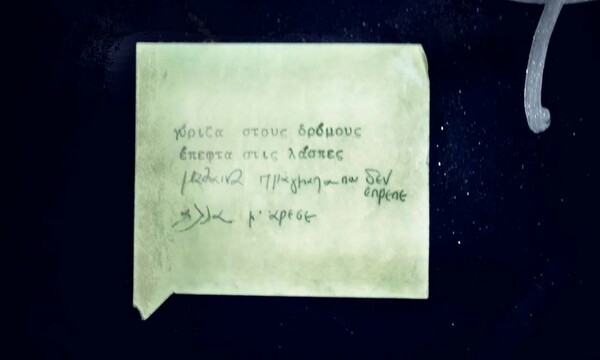 γύριζα στους δρόμους
έπεφτα στις λάσπες
μάθαινα πράγματα που δεν έπρεπε
αλλά μ' άρεσε